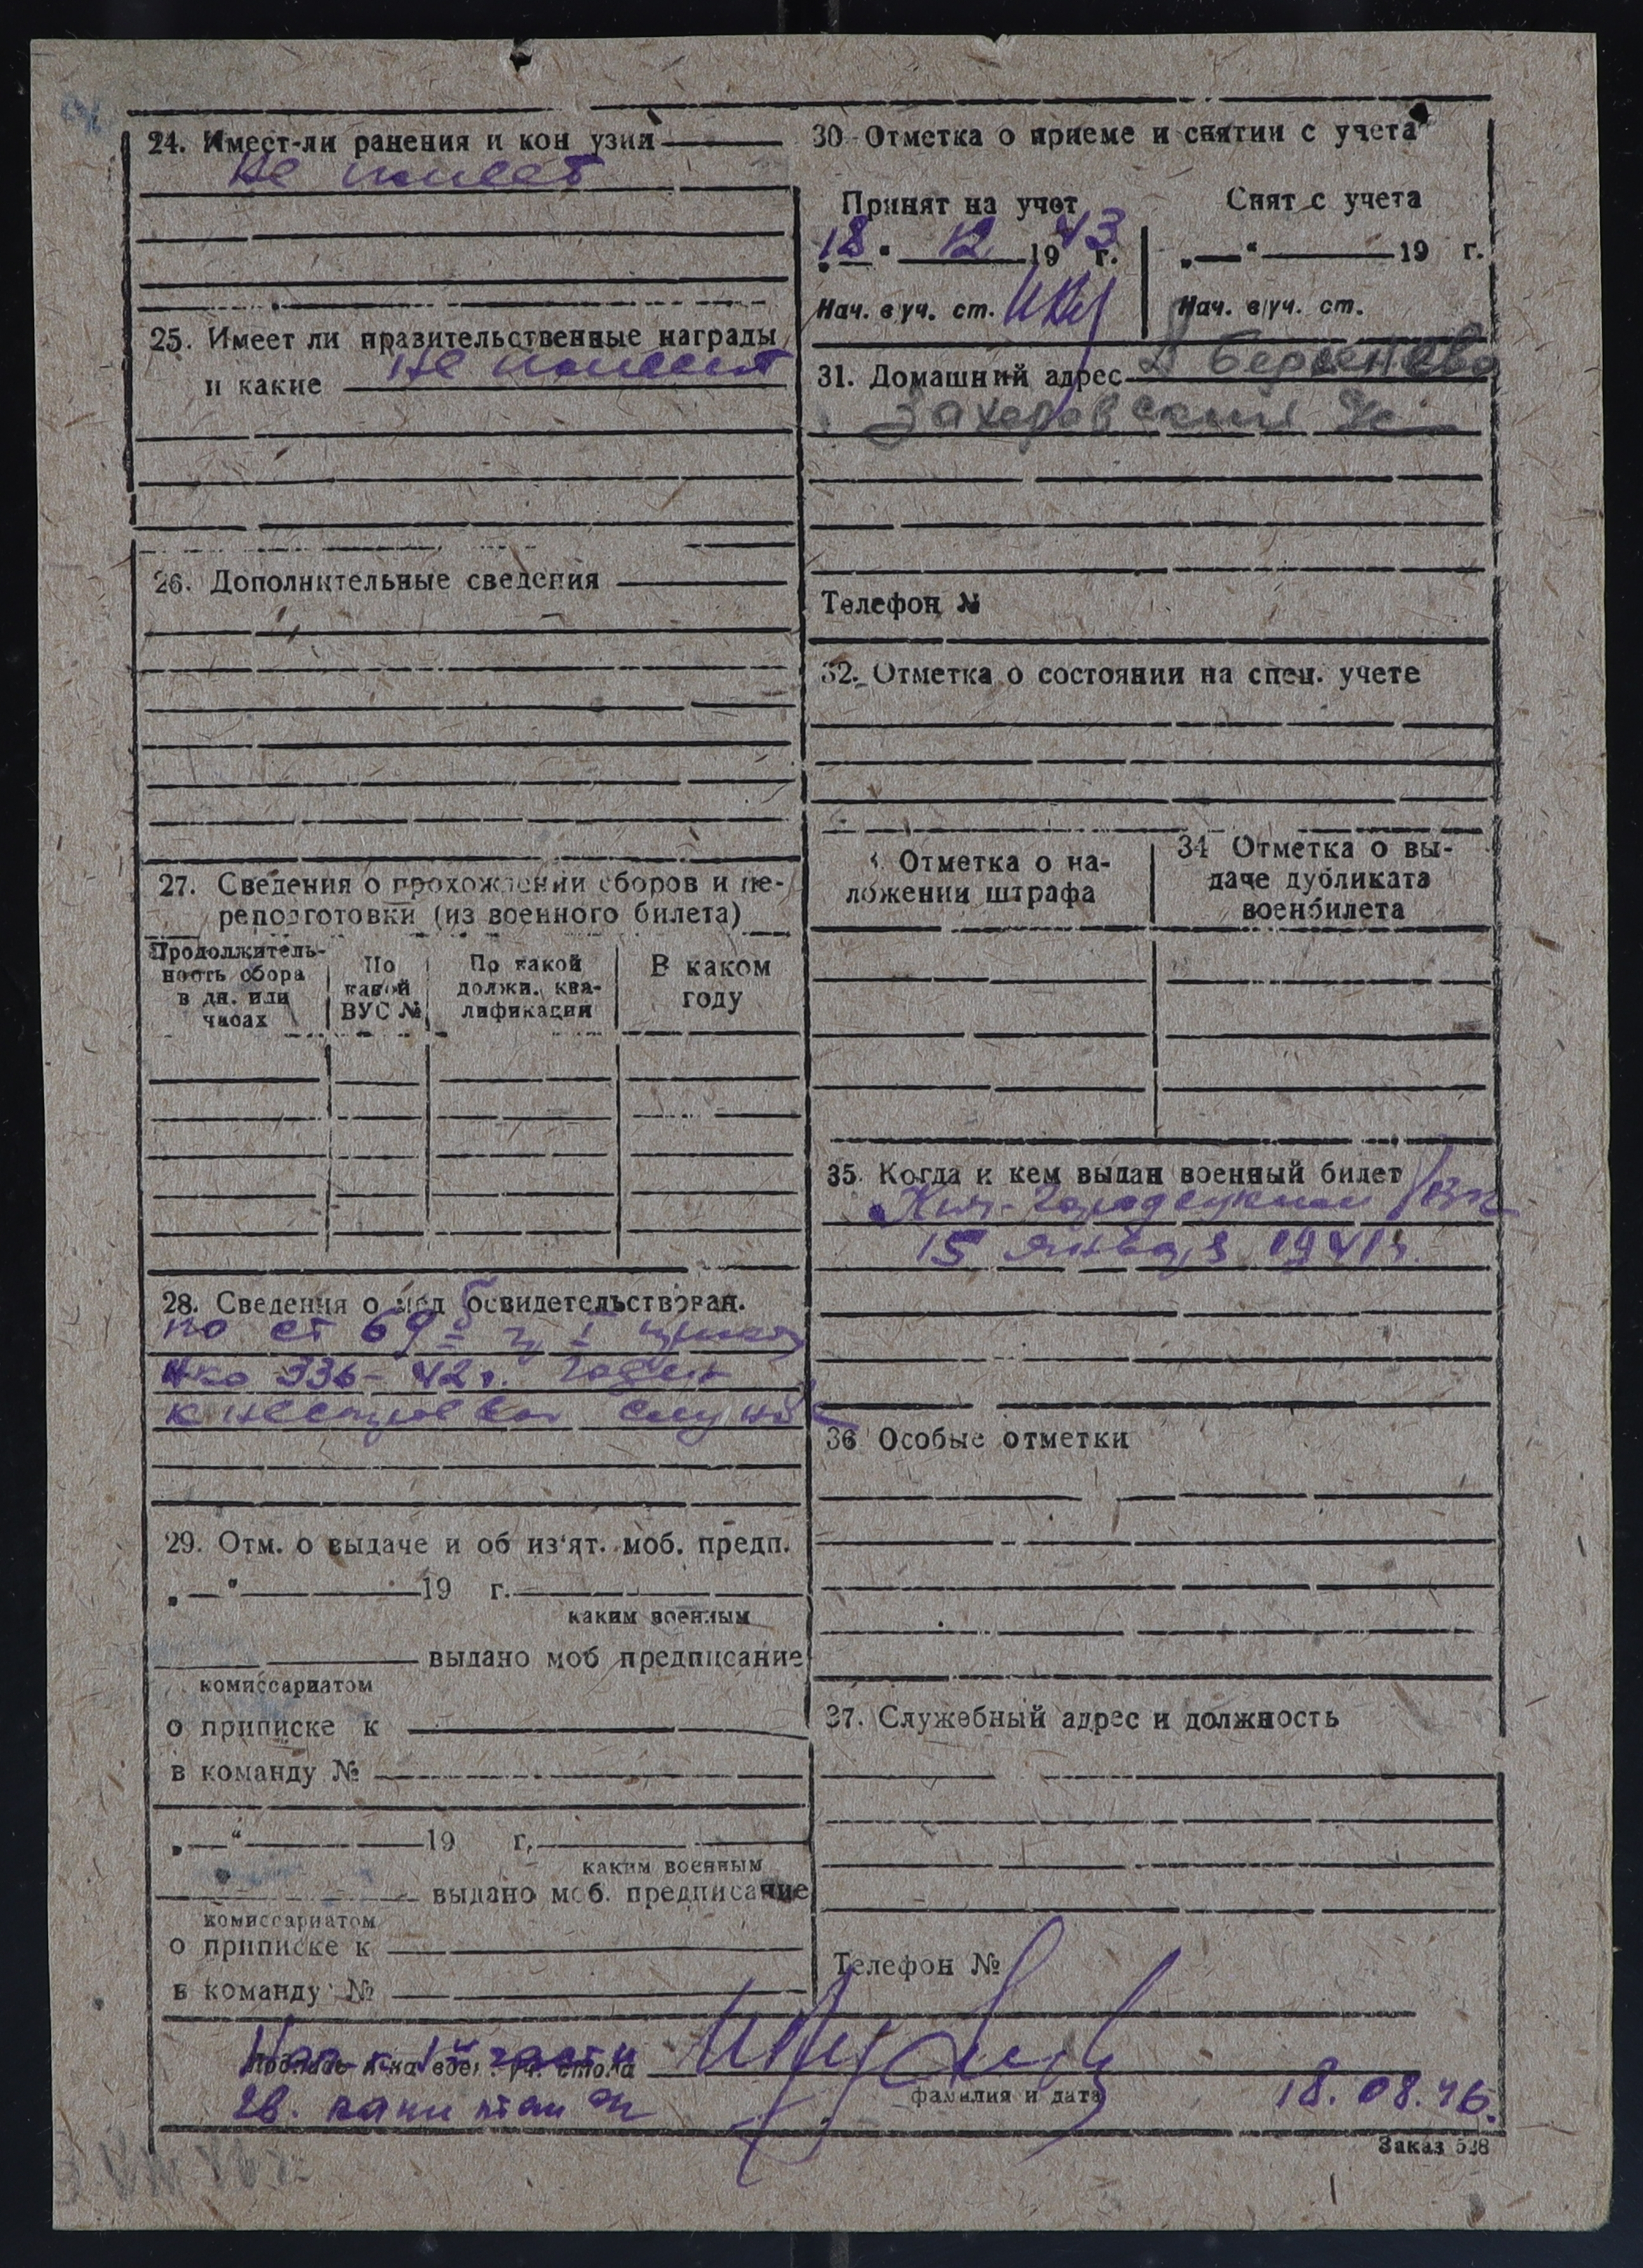 24. Имеет-ли ранения и кон узии
Не имеет
25. Имеет ли правительственные награды
и какие Не имеет
26. Дополнительные сведения
27. Сведения о прохождении сборов и пе-
реподготовки (из военного билета)
Продолжитель-
ность сбора
в дн. или
часах
По
какой
ВУС №
По какой
должн. ква-
лификации
В каком
году
28. Сведения о мед освидетельствован.
по ст 69
нко 336-42г. годен
к нестроевой службе
29. Отм. о выдаче и об из'ят. моб. предп.
„—“ 19 г.
каким военным
выдано моб предписание
комиссариатом
о приписке к
в команду №
„—“ 19 г.
каким военным
выдано моб. предписание
комиссариатом
о приписке к
в команду №
30 Отметка о приеме и снятии с учета
Принят на учет
„18“ 12 1943 г.
Нач. в/уч. ст.
Снят с учета
„—“ 19 г.
Нач. в/уч. ст.
31. Домашний адрес
Захаровский
Телефон №
32. Отметка о состоянии на спец. учете
Отметка о на-
ложении штрафа
34 Отметка о вы-
даче дубликата
военбилета
35. Когда и кем выдан военный билет
15 января 1941г.
36 Особые отметки
37. Служебный адрес и должность
Телефон №
Нач-к 1й части
гв. капитан
фамилия и дата
18.08.46.
Заказ 528